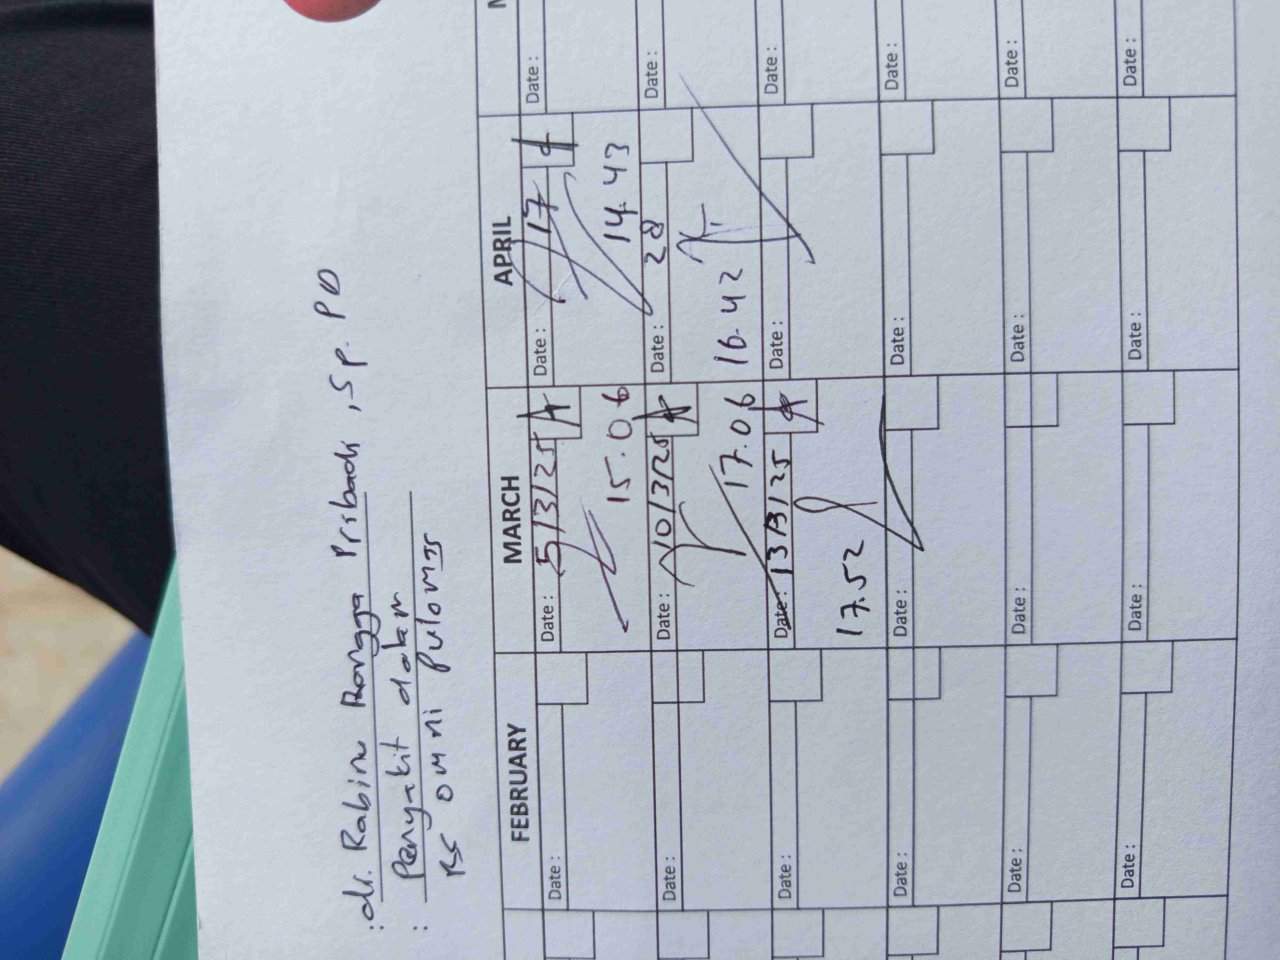 : dr. Rabin Rangga Pribadi, Sp. PD
: Penyakit dalam
RS OMNI Pulomas
FEBRUARY
MARCH
APRIL
Date :
Date : 5/3/25
15.06
Date : 17
14.43
Date :
Date :
Date : 10/3/25
17.06
Date : 28
16.42
Date :
Date :
Date : 13/3/25
17.52
Date :
Date :
Date :
Date :
Date :
Date :
Date :
Date :
Date :
Date :
Date :
Date :
Date :
Date :